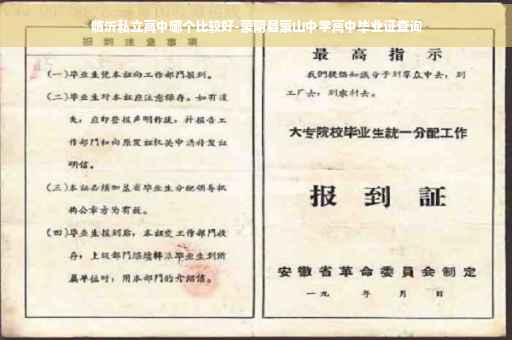 临沂私立高中哪个比较好-蒙阴县蒙山中学高中毕业证查询
报到注意事项
(一)毕业生凭本证向工作部门报到。
(二)毕业生对本证应注意保存。如有遗
失，应即登报声明作废，并报告工
作部门和向原发证机关申请补发证
明信。
(三)本证必须加盖省毕业生分配领导机
构公章方为有效。
(四)毕业生报到后，本证交工作部门收
存；上级部门继续转派毕业生到所
属单位时，用本部门的介绍信。
最高指示
我们提倡知识分子到羣众中去，到
工厂去，到农村去。
大专院校毕业生統一分配工作
报到証
安徽省革命委員会制定
一九 年 月 日